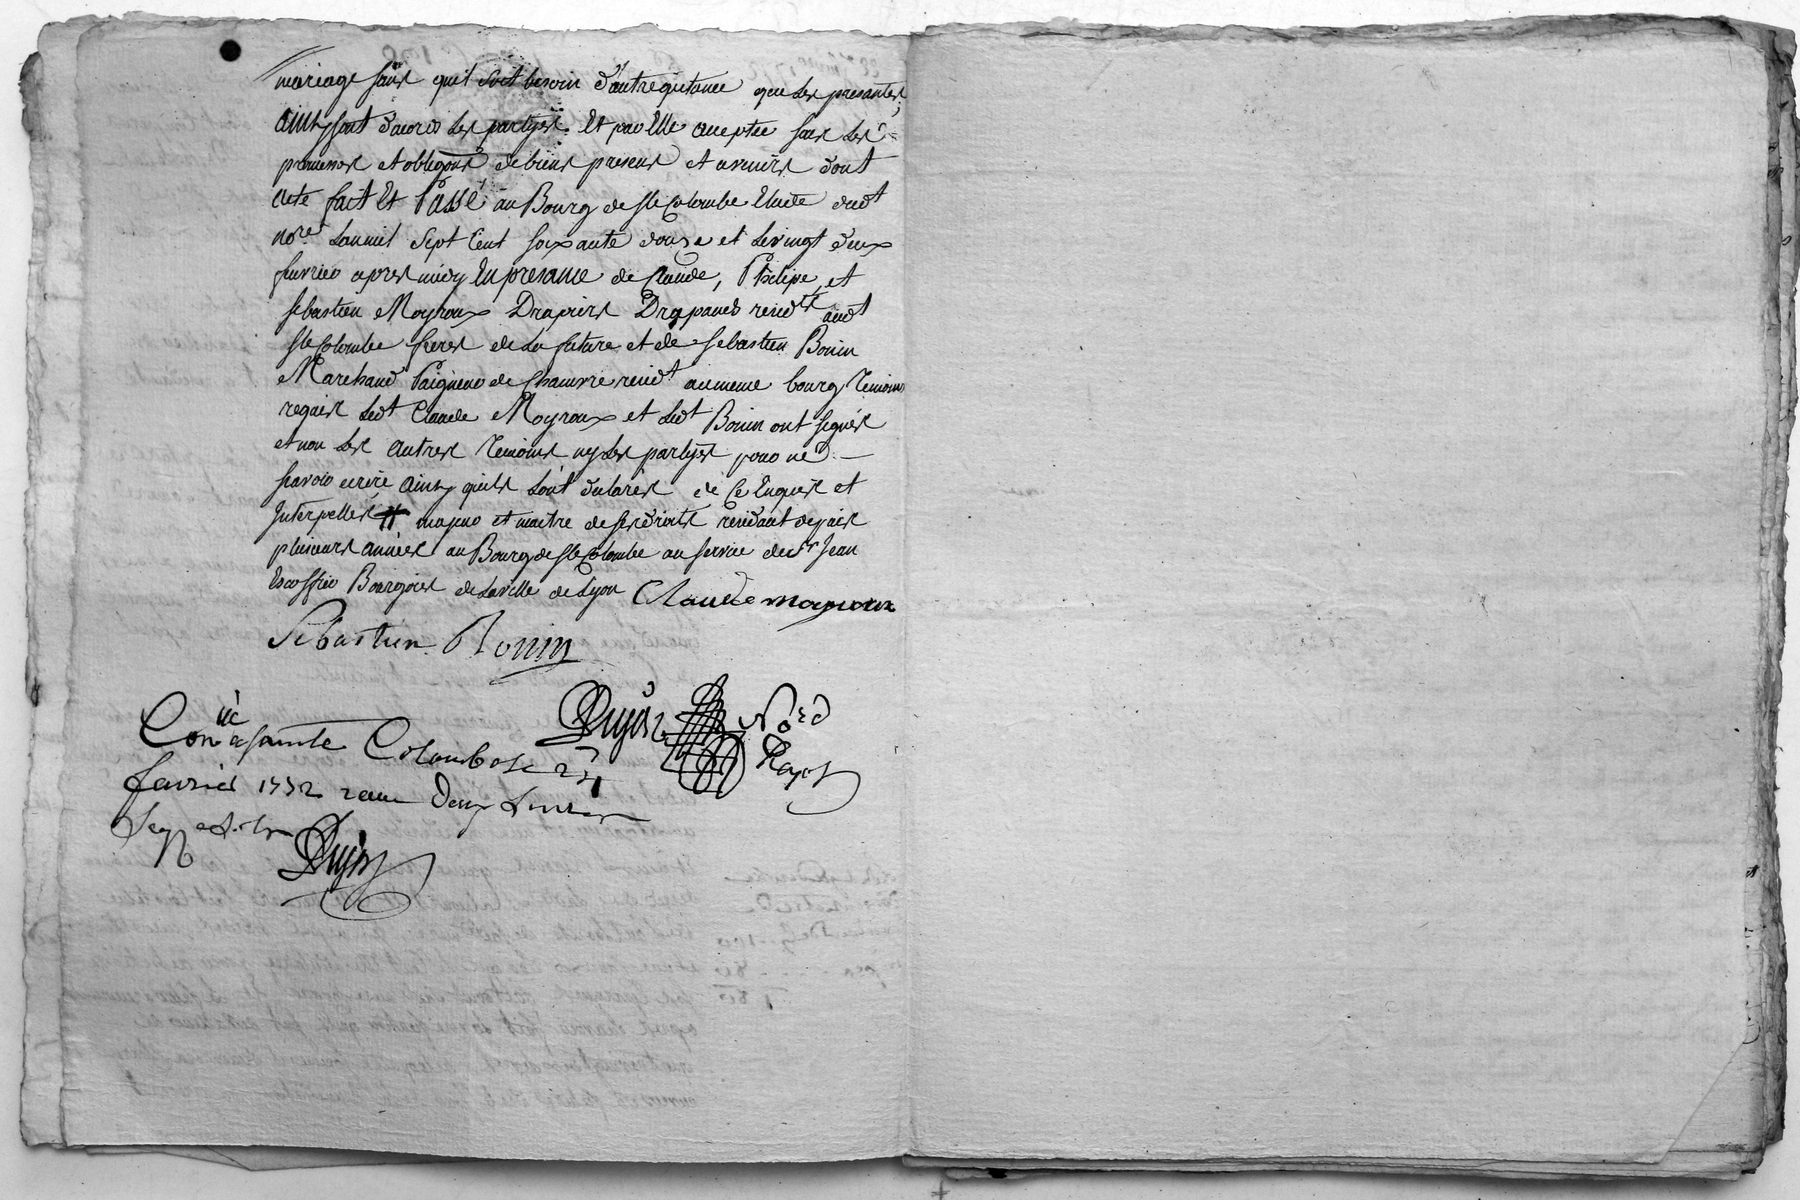 mariage sans quil soit besoin d'autre quitance que les presantes,
ainsy sont d'acord les partyes et par elle aceptée sous les
promesses et obligons de biens presens et avenirs dont
acte fait et passé au Bourg de Ste Colombe Etude dudt
nore Lan mil sept cent soixante douze et le vingt deux
fevrier apres midy En presance de Claude, Philipe, et
sebastien Moyroux Drapiers Drapans residts audt
Ste Colombe freres de La future et de Sebastien Bonin
Marchand Paigneur de Chanvre residt au meme bourg Temoins
requis Ledt Claude Moyroux et Ledt Bonin ont signés
et non Les autres Temoins ny Les partyes pour ne
scavoir ecrire ainsy quils L'ont déclarés de ce Enquis et
Interpellés # majeur et maitre de ses droits residant depuis
plusieurs années au Bourg de Ste Colombe au service de Sr Jean
Escoffier Bourgois de La ville de Lyon Claude moyroux
Sebastien Bonin
Dujast Nore Royal
Conlé a sainte Colombe le 24
fevrier 1772 reçu deux Livres
Dujast